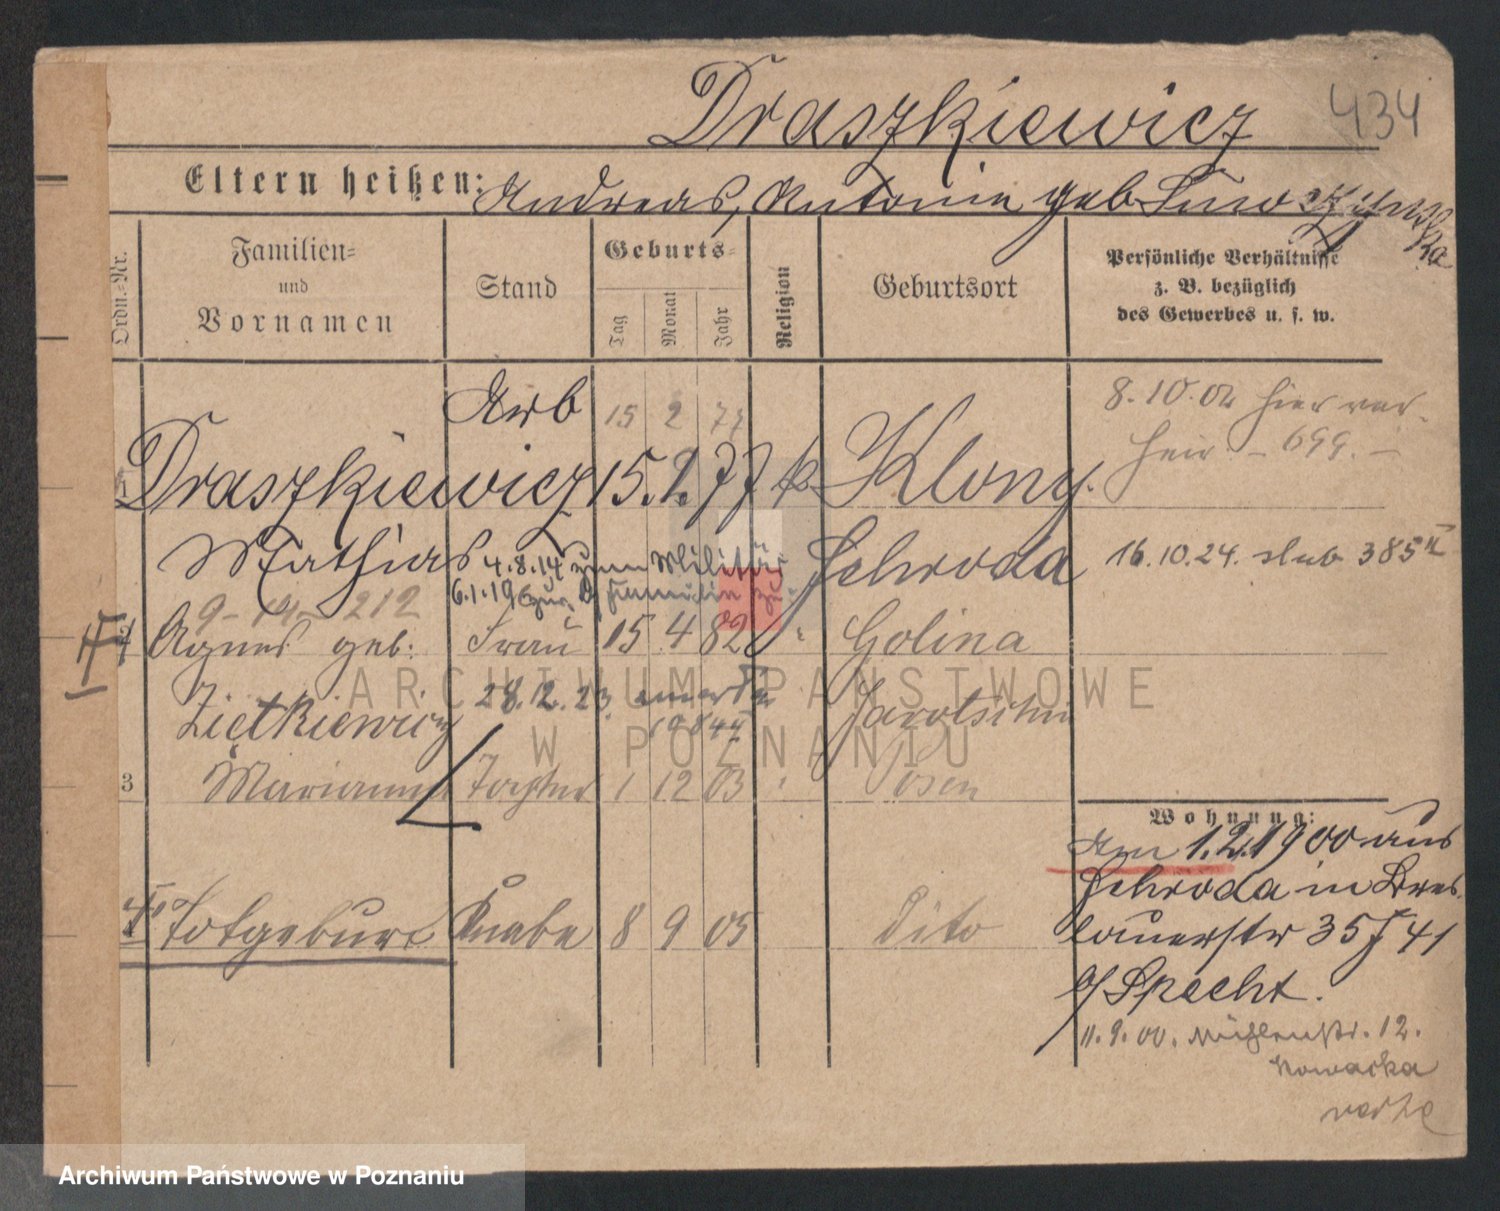 434
Draszkiewicz
Eltern heißen: Andreas, Antonie geb.
Ordn.-Nr.
Familien-
und
Vornamen
Stand
Geburts-
Tag
Monat
Jahr
Religion
Geburtsort
Persönliche Verhältnisse
z. B. bezüglich
des Gewerbes u. s. w.
Arb 15 2 77
8.10.02 hier ver-
heir. - 699. -
1 Draszkiewicz 15. 2. 77 k. Klony.
Mathias
4.8.14 zum Militär
Schroda
16.10.24. 385
6.1.19 zur Familie zu.
9 - 14 - 212
Agnes geb: Frau 15 4 82 " Golina
Ziętkiewicz
28.12.23.
Jarotschin
3 Marianna Tochter 1 12 03 " Posen
Wohnung:
Am 1.2.1900 aus
Schroda in Bres-
lauerstr 35 J 41
b/ Specht.
Totgeburt Knabe 8 9 05 dito
11.9.00. Mühlenstr. 12.
Nowacka
ARCHIWUM PAŃSTWOWE
W POZNANIU
Archiwum Państwowe w Poznaniu